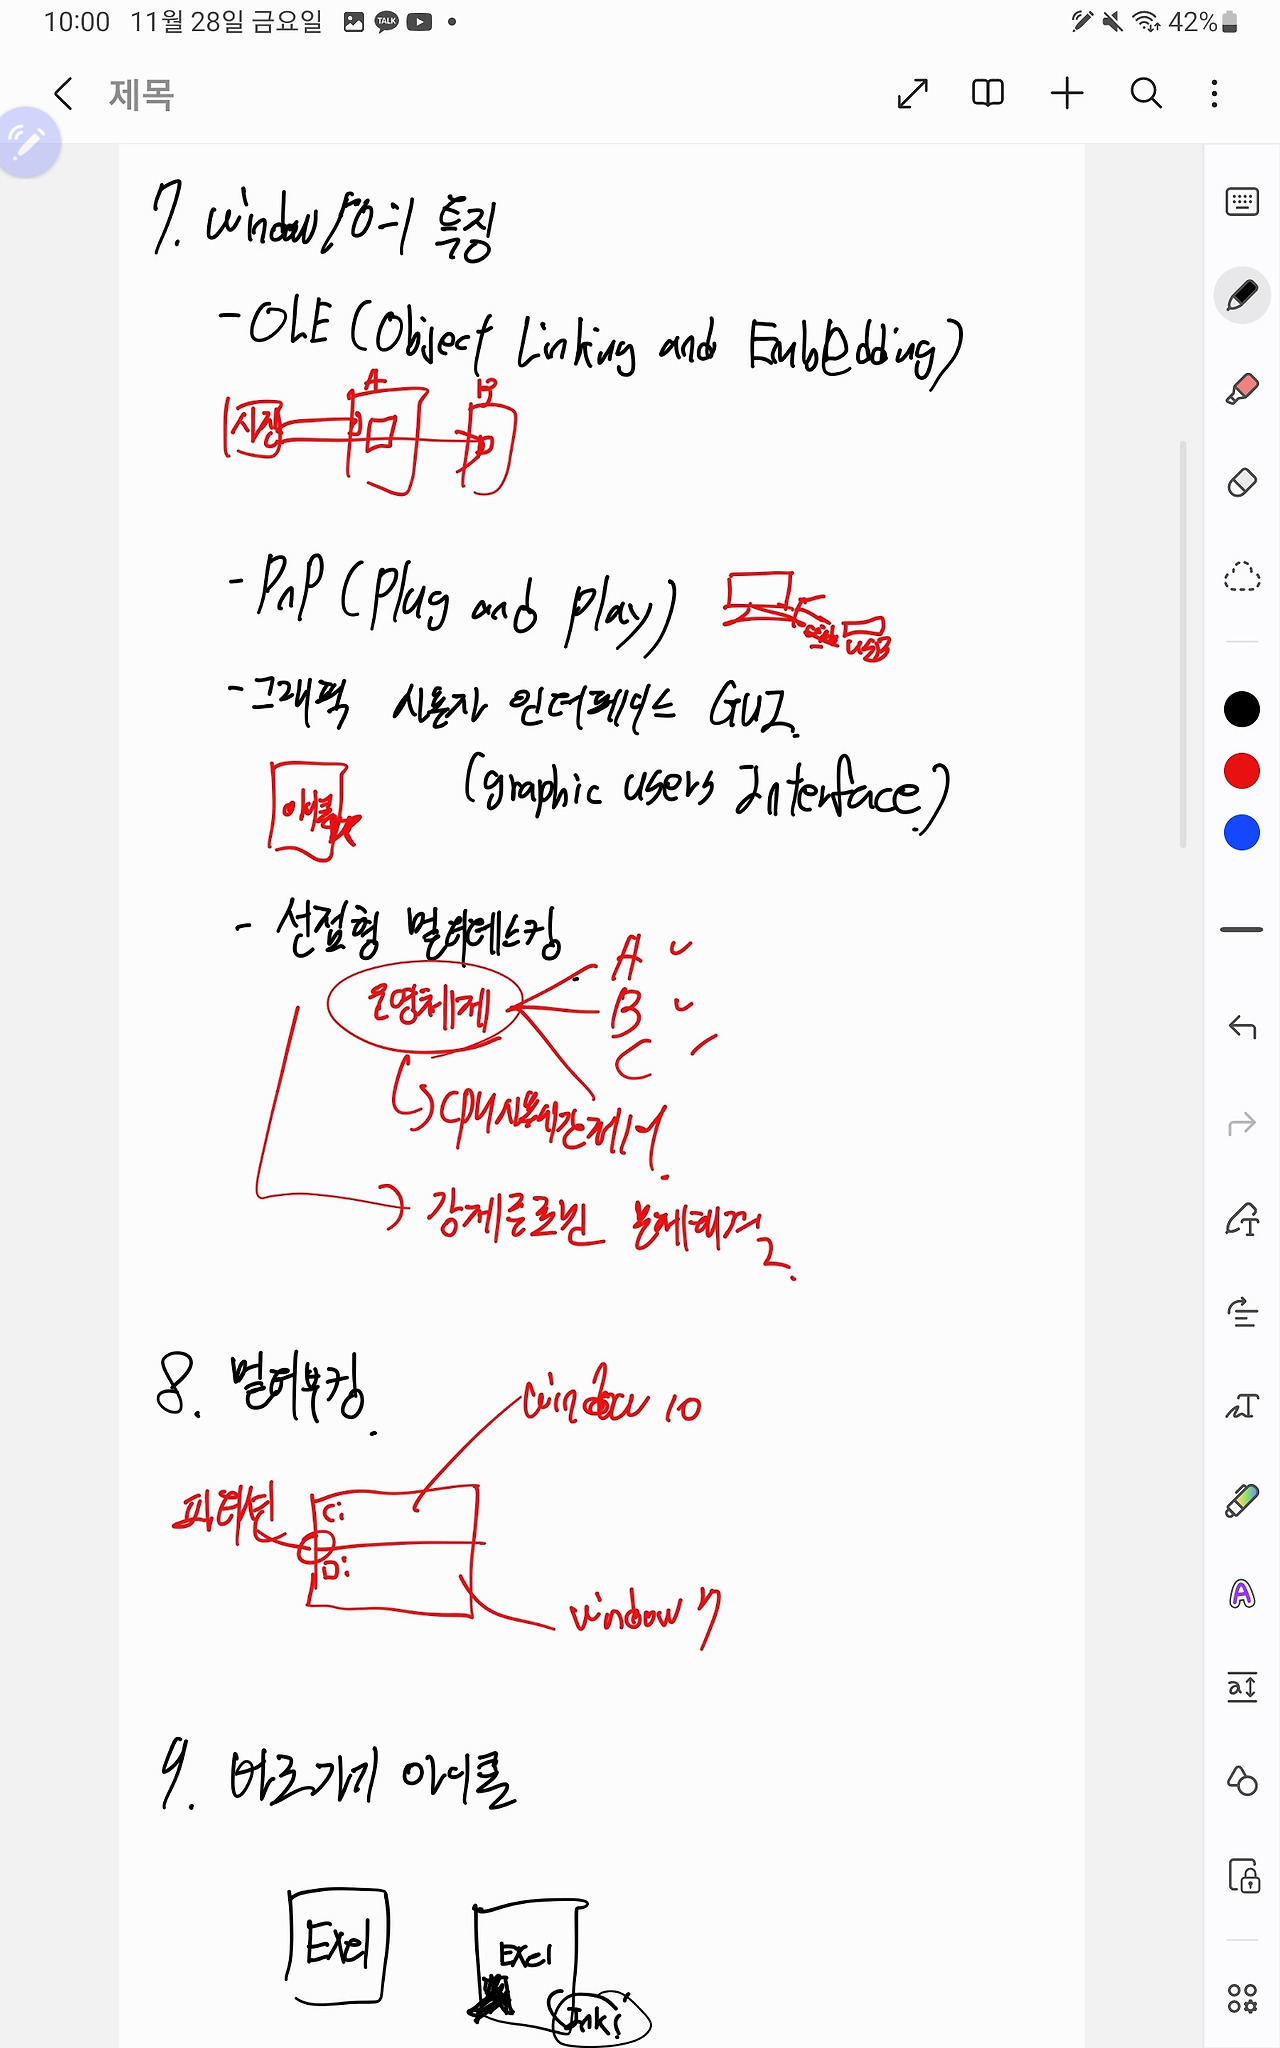 10:00 11월 28일 금요일 42%
제목
7. window10의 특징
- OLE (Object Linking and Embedding)
사진 A B
- PnP (Plug and Play)
USB
- 그래픽 사용자 인터페이스 GUI.
(graphic users Interface)
아이콘
- 선점형 멀티테스킹
운영체제 A
B
C
CPU사용시간제어.
강제종료 문제해결
8. 멀티부팅.
window 10
파티션 C:
D:
window 7
9. 바로가기 아이콘
Exel Exel